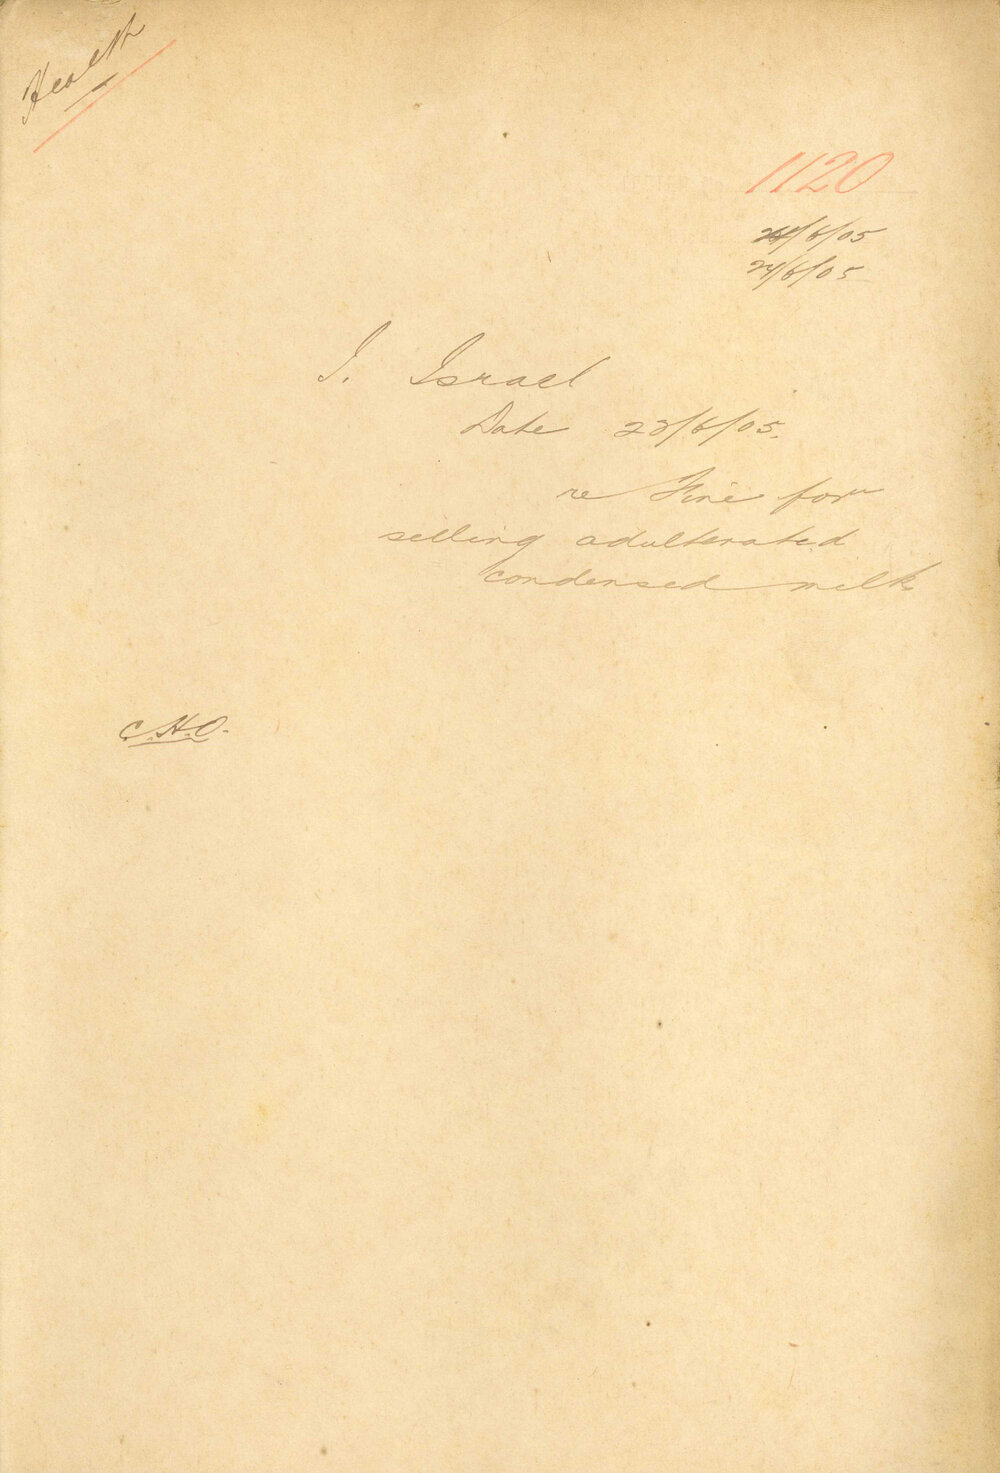 Health
1120
24/6/05
24/6/05
I. Israel
Date 23/6/05.
re Fine for
selling adulterated
condensed milk
C.H.O.